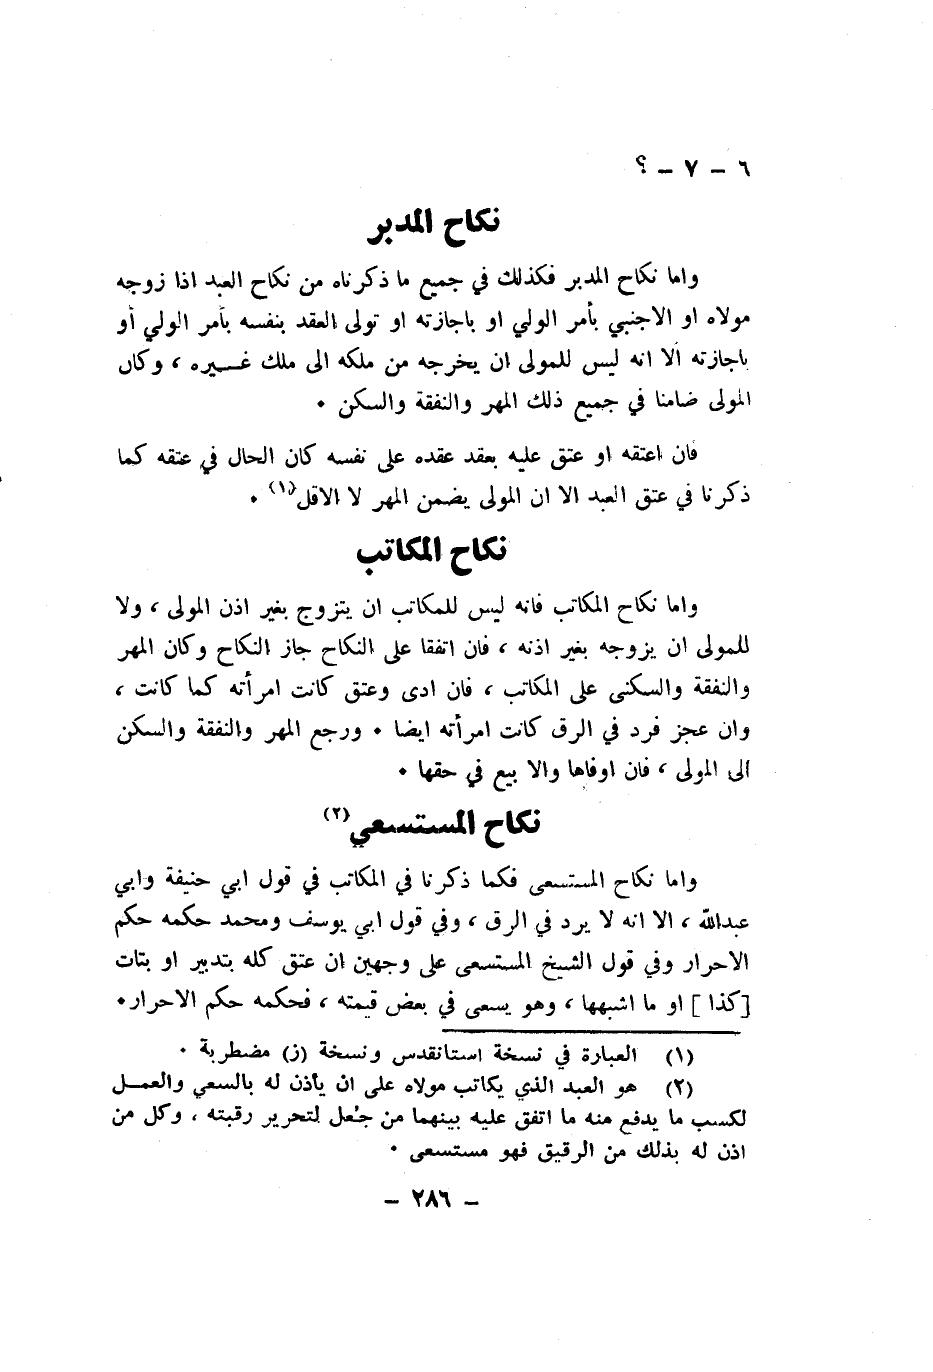 ٦ – ٧ – ؟
نكاح المدبر
واما نكاح المدبر فكذلك في جميع ما ذكرناه من نكاح العبد اذا زوجه
مولاه او الاجنبي بأمر الولي او باجازته او تولى العقد بنفسه بأمر الولي أو
باجازته الا انه ليس للمولى ان يخرجه من ملكه الى ملك غـــيره ، وكان
المولى ضامنا في جميع ذلك المهر والنفقة والسكن ٠
فان اعتقه او عتق عليه بعقد عقده على نفسه كان الحال في عتقه كما
ذكرنا في عتق العبد الا ان المولى يضمن المهر لا الاقل(١) ٠
نكاح المكاتب
واما نكاح المكاتب فانه ليس للمكاتب ان يتزوج بغير اذن المولى ، ولا
للمولى ان يزوجه بغير اذنه ، فان اتفقا على النكاح جاز النكاح وكان المهر
والنفقة والسكنى على المكاتب ، فان ادى وعتق كانت امرأته كما كانت ،
وان عجز فرد في الرق كانت امرأته ايضا ٠ ورجع المهر والنفقة والسكن
الى المولى ، فان اوفاها والا بيع في حقها ٠
نكاح المستسعي(٢)
واما نكاح المستسعى فكما ذكرنا في المكاتب في قول ابي حنيفة وابي
عبدالله ، الا انه لا يرد في الرق ، وفي قول ابي يوسف ومحمد حكمه حكم
الاحرار وفي قول الشيخ المستسعى على وجهين ان عتق كله بتدبير او بتات
[كذا] او ما اشبهها ، وهو يسعى في بعض قيمته ، فحكمه حكم الاحرار٠
(١) العبارة في نسخة استانقدس ونسخة (ز) مضطربة ٠
(٢) هو العبد الذي يكاتب مولاه على ان يأذن له بالسعي والعمـل
لكسب ما يدفع منه ما اتفق عليه بينهما من جُعل لتحرير رقبته ، وكل من
اذن له بذلك من الرقيق فهو مستسعى ٠
– ٢٨٦ –